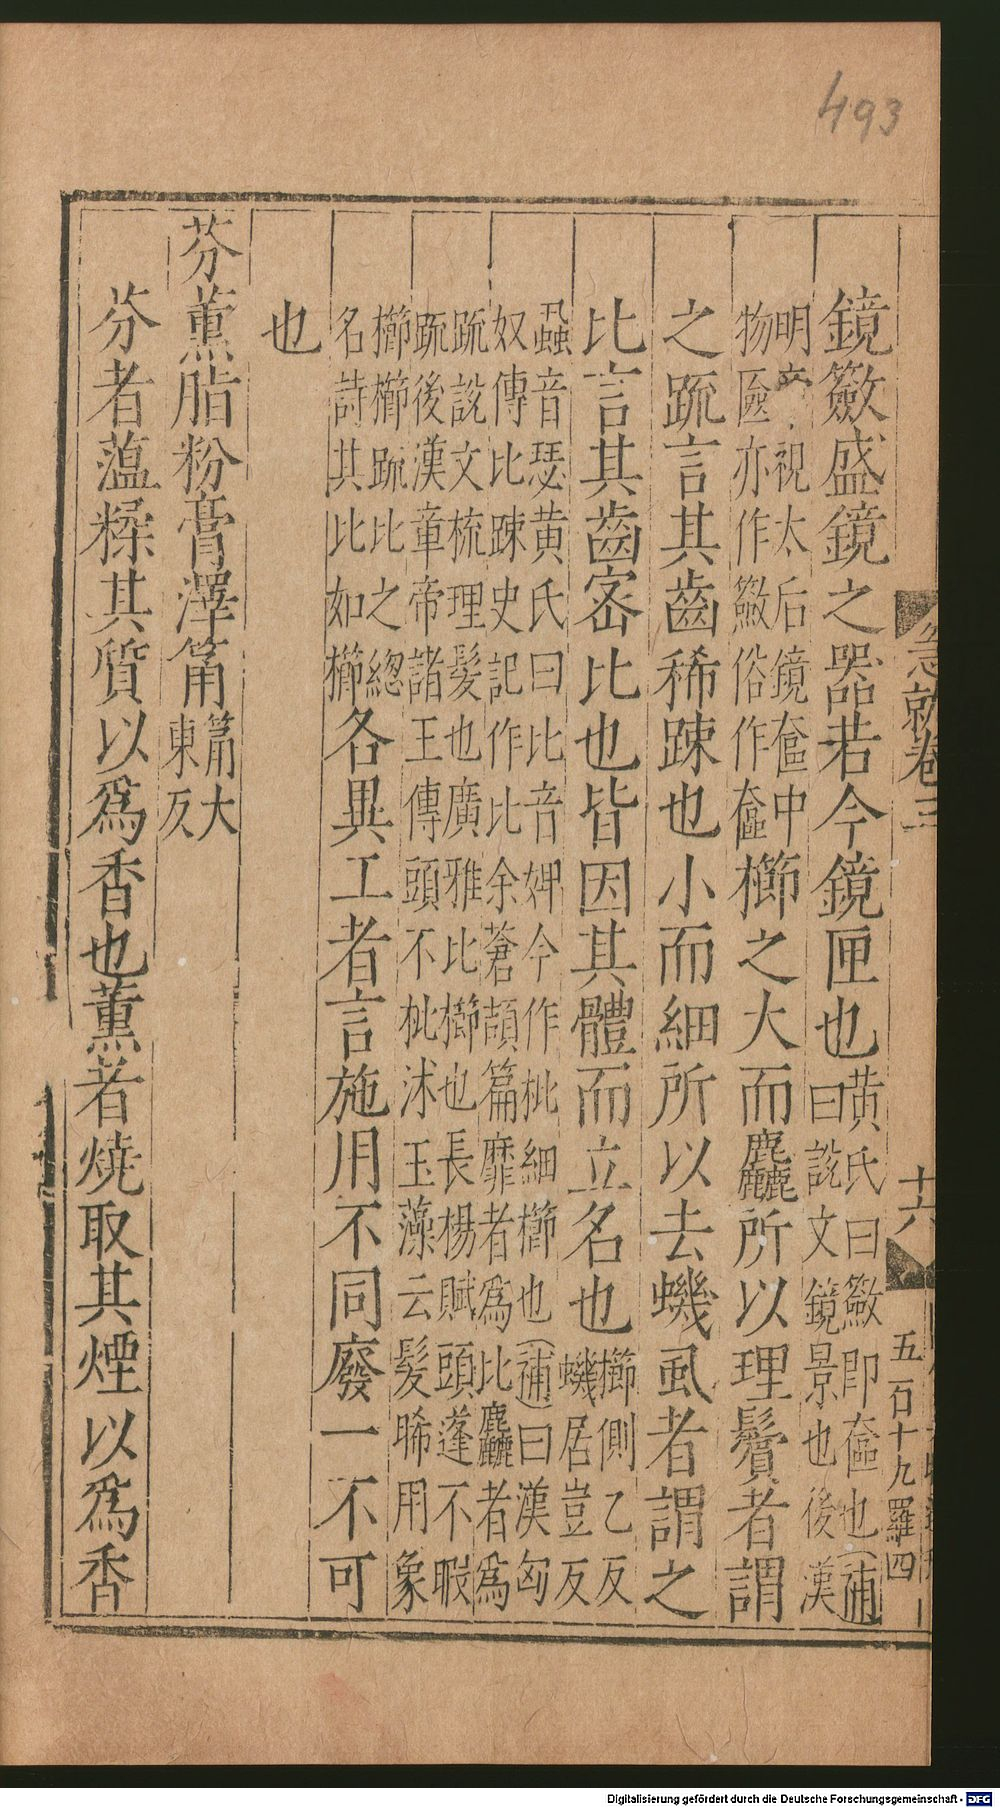 493
鏡籢盛鏡之器若今鏡匣也黃氏曰籢即奩也補
曰說文鏡景也後漢
明 視太后鏡奩中
物匳亦作籢俗作奩櫛之大而麤所以理鬢者謂
之䟽言其齒稀踈也小而細所以去蟣虱者謂之
比言其齒密比也皆因其體而立名也櫛側乙反
蟣居豈反
蝨音瑟黃氏曰比音婢今作枇細櫛也補曰漢匈
奴傳比踈史記作比余蒼頡篇靡者為比麤者為
䟽說文梳理髮也廣雅比櫛也長楊賦頭蓬不暇
䟽後漢章帝諸王傳頭不枇沭玉藻云髮晞用象
櫛櫛䟽比之總
名詩其比如櫛各異工者言施用不同廢一不可
也
芬薰脂粉膏澤筩箾大
東反
芬者薀糅其質以為香也薰者燒取其煙以為香
急就卷三
十六
五百十九羅四
Digitalisierung gefördert durch die Deutsche Forschungsgemeinschaft - DFG